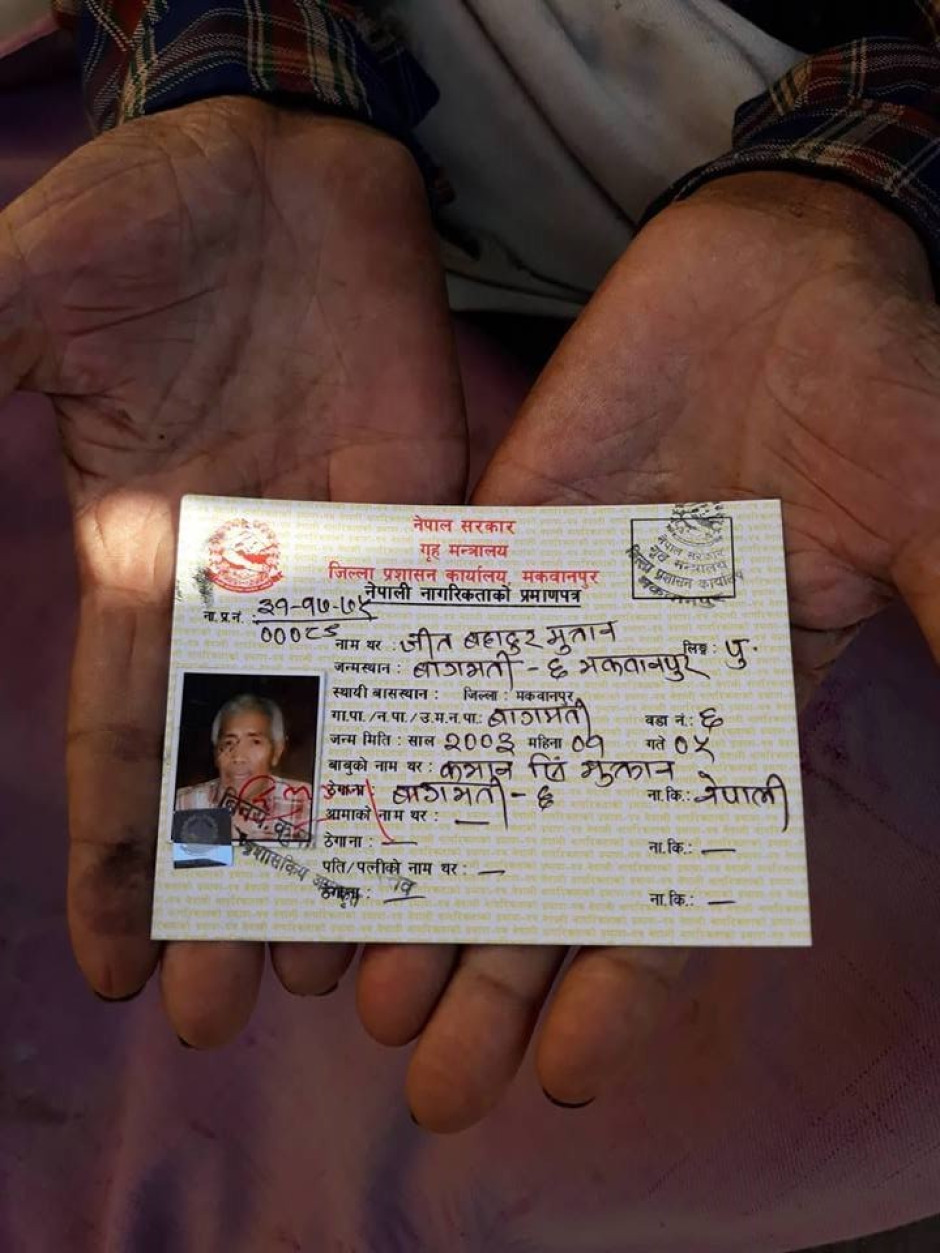 नेपाल सरकार
गृह मन्त्रालय
जिल्ला प्रशासन कार्यालय, मकवानपुर
नेपाली नागरिकताको प्रमाणपत्र
ना.प्र.नं. : ३१-१७-७५
नाम थर : जीत बहादुर मुतान लिङ्ग : पु.
जन्मस्थान : बागमती - ६ मकवानपुर
स्थायी बासस्थान : जिल्ला : मकवानपुर
गा.पा./न.पा./उ.म.न.पा.: बागमती वडा नं.: ६
जन्म मिति : साल २००३ महिना ०१ गते ०५
बाबुको नाम थर : सिं
ठेगाना: बागमती - ६ ना.कि.: नेपाली
आमाको नाम थर : —
ठेगाना : — ना.कि.: —
पति/पत्नीको नाम थर : —
ठेगाना : — ना.कि.: —
नेपाल सरकार
गृह मन्त्रालय
जिल्ला प्रशासन कार्यालय
मकवानपुर